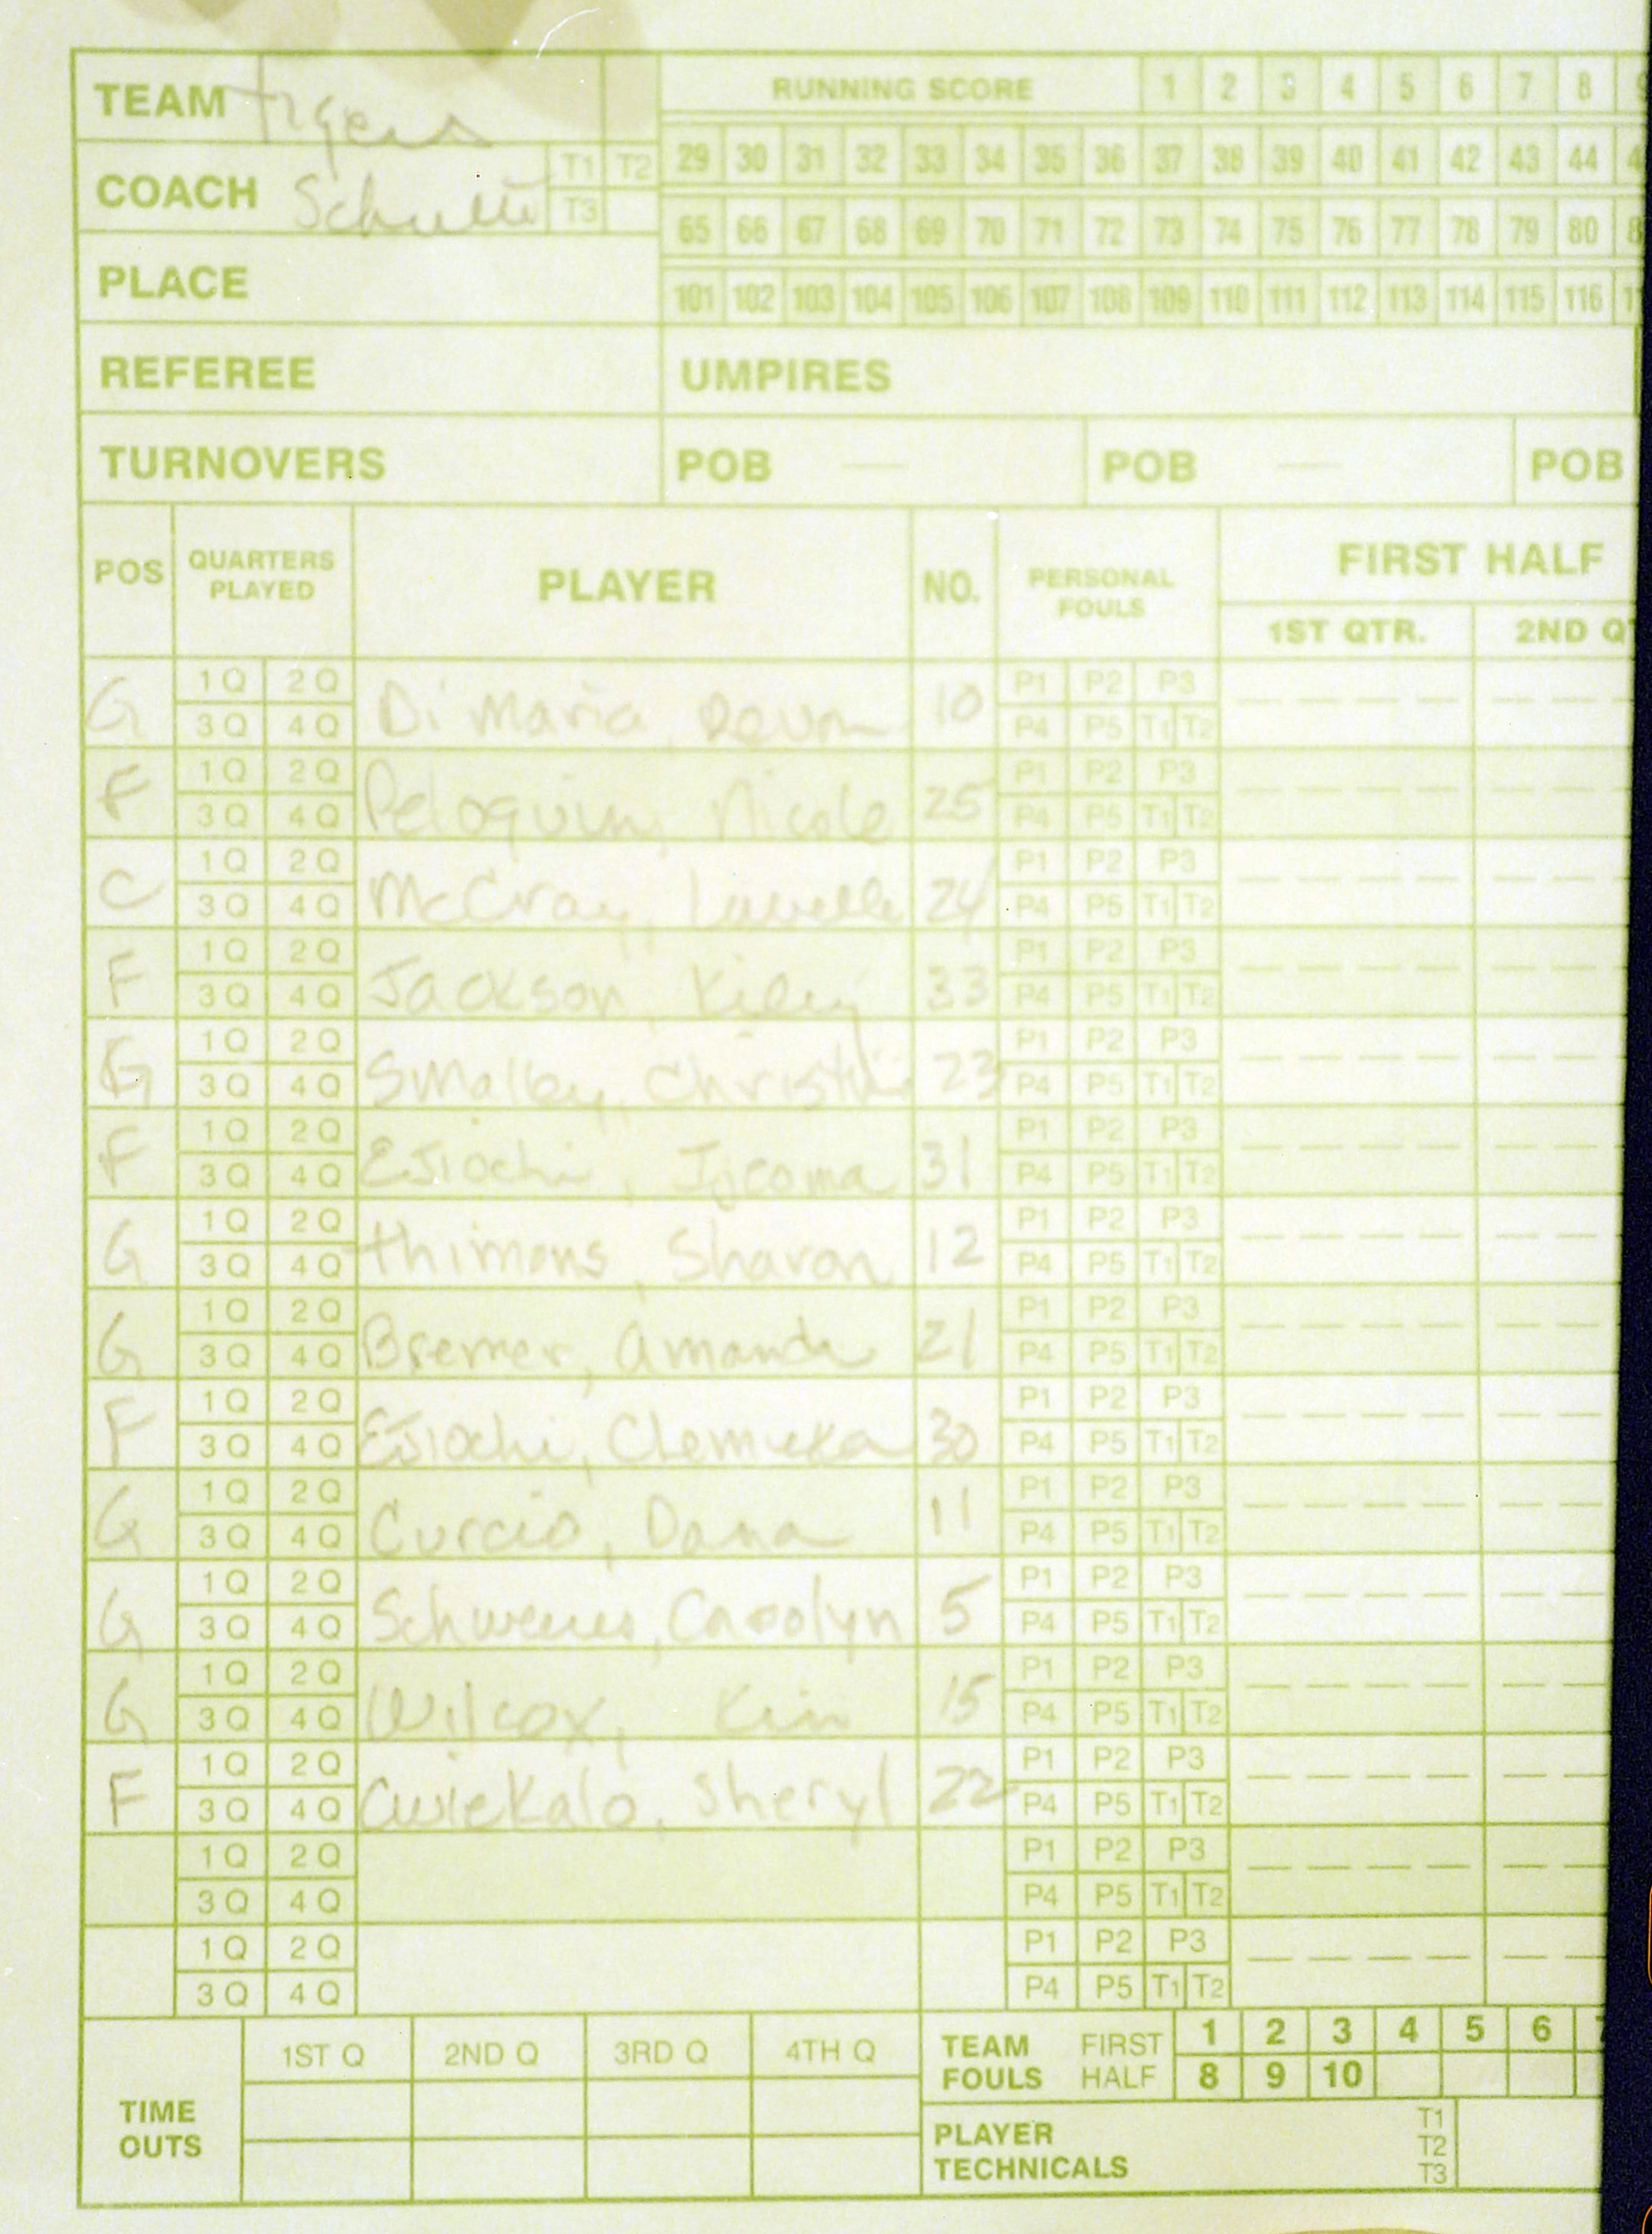 TEAM Tigers
RUNNING SCORE 1 2 3 4 5 6 7 8
29 30 31 32 33 34 35 36 37 38 39 40 41 42 43 44
COACH T1 T2
T3
65 66 67 68 69 70 71 72 73 74 75 76 77 78 79 80
PLACE
101 102 103 104 105 106 107 108 109 110 111 112 113 114 115 116
REFEREE UMPIRES
TURNOVERS POB — POB — POB
POS QUARTERS PLAYED PLAYER NO. PERSONAL FOULS FIRST HALF
1ST QTR. 2ND
1Q 2Q P1 P2 P3
G 3Q 4Q DiMaria, Devon 10 P4 P5 T1 T2
1Q 2Q P1 P2 P3
F 3Q 4Q Peloquin, Nicole 25 P4 P5 T1 T2
1Q 2Q P1 P2 P3
C 3Q 4Q McCray, 24 P4 P5 T1 T2
1Q 2Q P1 P2 P3
F 3Q 4Q Jackson, Kiley 33 P4 P5 T1 T2
1Q 2Q P1 P2 P3
G 3Q 4Q Smalley, 23 P4 P5 T1 T2
1Q 2Q P1 P2 P3
F 3Q 4Q Esiochi, Ijeoma 31 P4 P5 T1 T2
1Q 2Q P1 P2 P3
G 3Q 4Q Thimons, Sharon 12 P4 P5 T1 T2
1Q 2Q P1 P2 P3
G 3Q 4Q Bremer, Amanda 21 P4 P5 T1 T2
1Q 2Q P1 P2 P3
F 3Q 4Q Esiochi, Chemueka 30 P4 P5 T1 T2
1Q 2Q P1 P2 P3
G 3Q 4Q Curcio, Dana 11 P4 P5 T1 T2
1Q 2Q P1 P2 P3
G 3Q 4Q Carolyn 5 P4 P5 T1 T2
1Q 2Q P1 P2 P3
G 3Q 4Q Wilcox, Kim 15 P4 P5 T1 T2
1Q 2Q P1 P2 P3
F 3Q 4Q Cwiekalo, Sheryl 22 P4 P5 T1 T2
1Q 2Q P1 P2 P3
3Q 4Q P4 P5 T1 T2
1Q 2Q P1 P2 P3
3Q 4Q P4 P5 T1 T2
TIME OUTS 1ST Q 2ND Q 3RD Q 4TH Q
TEAM FOULS FIRST HALF 1 2 3 4 5 6
8 9 10
PLAYER TECHNICALS T1
T2
T3